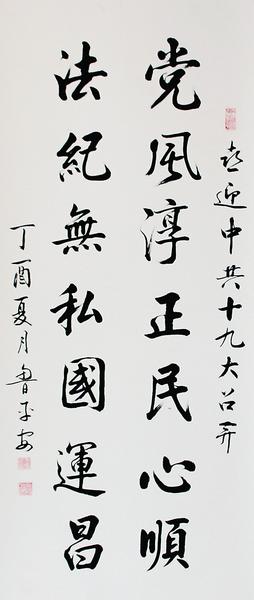 喜迎中共十九大召开
党风淳正民心順
法紀無私國運昌
丁酉夏月鲁平安